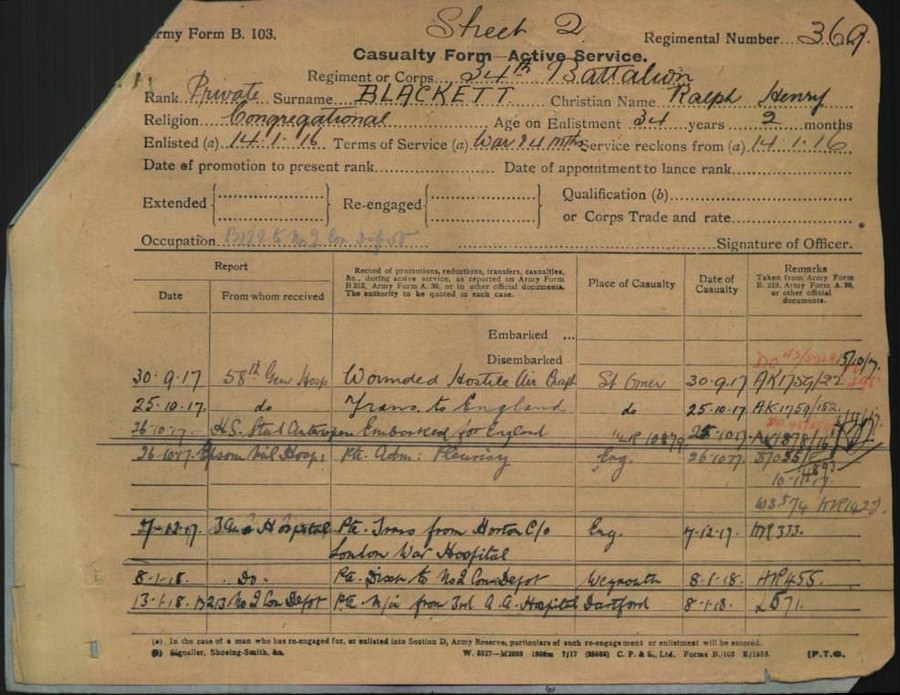 Army Form B. 103.
Sheet 2
Regimental Number 369.
Casualty Form—Active Service.
Regiment or Corps 34th Battalion
Rank Private Surname BLACKETT Christian Name Ralph Henry
Religion Congregational Age on Enlistment 34 years 2 months
Enlisted (a) 14.1.16 Terms of Service (a) War & 4 mths Service reckons from (a) 14.1.16
Date of promotion to present rank Date of appointment to lance rank
Extended Re-engaged Qualification (b)
or Corps Trade and rate
Occupation B122 to No 2 Con Depot Signature of Officer.
Report
Date From whom received
Record of promotions, reductions, transfers, casualties, &c., during active service, as reported on Army Form B 213, Army Form A. 36, or in other official documents. The authority to be quoted in each case.
Place of Casualty
Date of Casualty
Remarks Taken from Army Form B. 213, Army Form A. 36, or other official documents.
Embarked ...
Disembarked
15/10/17.
30.9.17 58th Gen Hosp Wounded Hostile Air Craft St Omer 30.9.17 AK1759/22
25.10.17. do Trans. to England do 25.10.17. AK1759/152.
26.10.17. H.S. Stad Antwerpen Embarked for England 25.10.17 AK1878/16
26.10.17 Epsom Mil Hosp: Pte. Adm: Pleurisy Eng. 26.10.17.
10-11-17.
W3574 HR1427
7-12-17. 3 Aux Hospital Pte. Trans from Horton C/o Eng. 7-12-17. HR333.
London War Hospital
8-1-18. Do. Pte. Disch to No 2 Con Depot Weymouth 8-1-18. HR455.
13-1-18. B213 No 2 Con Depot Pte. M/i from 3rd A.A. Hospital Dartford 8-1-18. L571.
(a). In the case of a man who has re-engaged for, or enlisted into Section D, Army Reserve, particulars of such re-engagement or enlistment will be entered.
(b) Signaller, Shoeing-Smith, &c. C. P. & S., Ltd. Forms B./103 E/1535. [P.T.O.